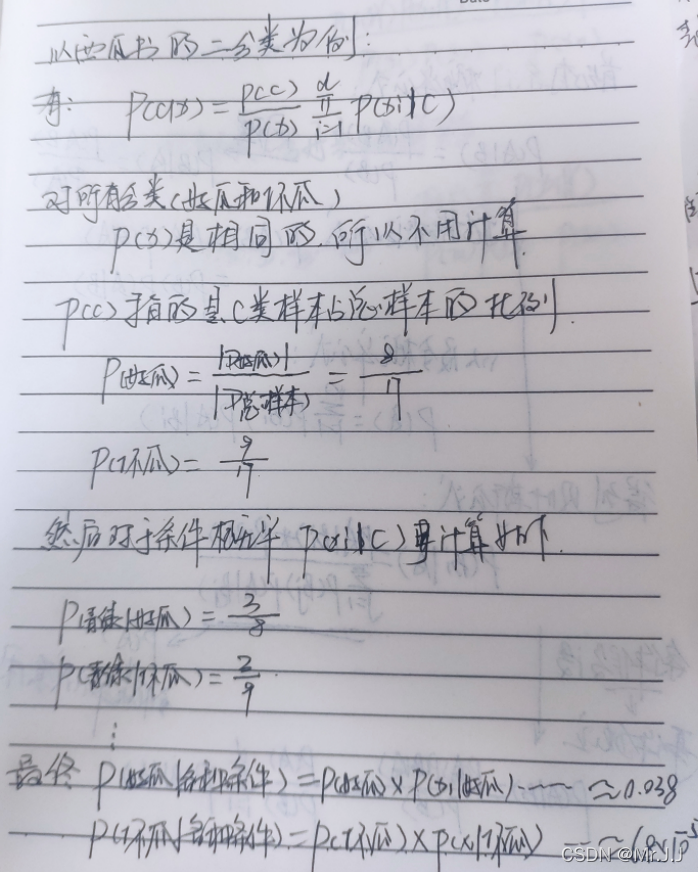 以西瓜书的二分类为例：
有： P(c|x) = P(c)/P(x) ∏_{i=1}^{d} P(xi|C)
对所有分类(好瓜和坏瓜)
P(x)是相同的，所以不用计算.
P(c)指的是C类样本占总样本的比例.
P(好瓜) = |D好瓜| / |D总样本| = 8/17
P(坏瓜) = 9/17
然后对于条件概率 P(xi|C)要计算如下.
P(青绿|好瓜) = 3/8
P(青绿|坏瓜) = 2/9
⋮
最终 P(好瓜|各种条件) = P(好瓜) × P(xi|好瓜) ······ ≈ 0.038
P(坏瓜|各种条件) = P(坏瓜) × P(x|坏瓜) ··· ≈
CSDN @Mr.J.J